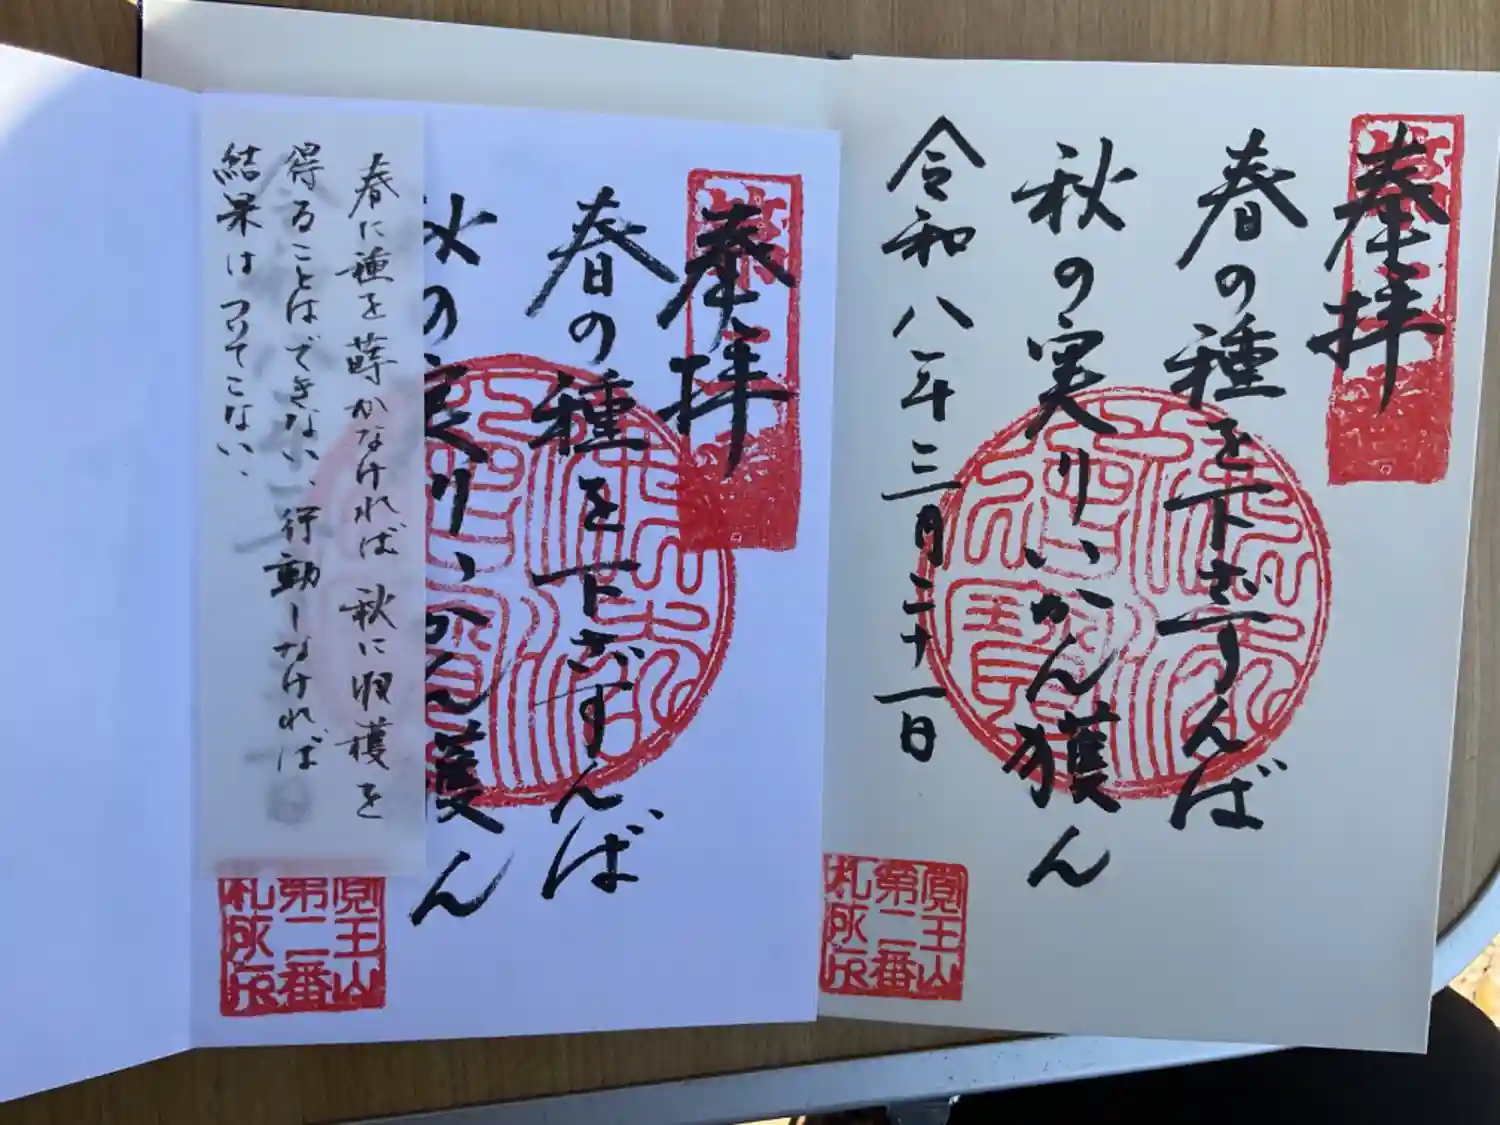 奉拝
春の種を下ざすんば
秋の実りいかん獲ん
令和八年三月二十一日
覺王山
第二番
札
奉拝
春の種を下ざすんば
秋の実りいかん獲ん
春に種を蒔かなければ 秋に収穫を
得ることはできない、行動しなければ
結果はついてこない、
覺王山
第二番
札